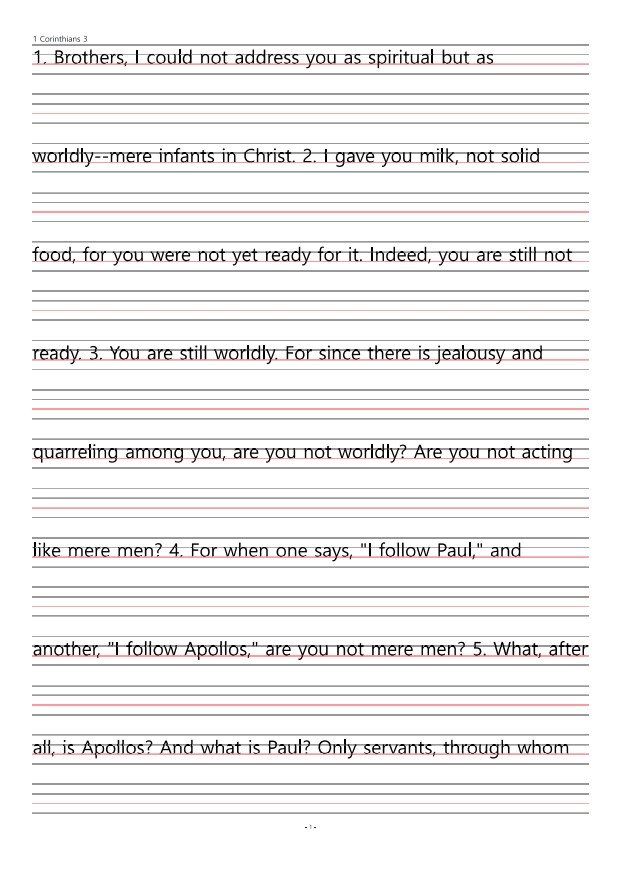 1 Corinthians 3
1. Brothers, I could not address you as spiritual but as
worldly--mere infants in Christ. 2. I gave you milk, not solid
food, for you were not yet ready for it. Indeed, you are still not
ready. 3. You are still worldly. For since there is jealousy and
quarreling among you, are you not worldly? Are you not acting
like mere men? 4. For when one says, "I follow Paul," and
another, "I follow Apollos," are you not mere men? 5. What, after
all, is Apollos? And what is Paul? Only servants, through whom
- 1 -